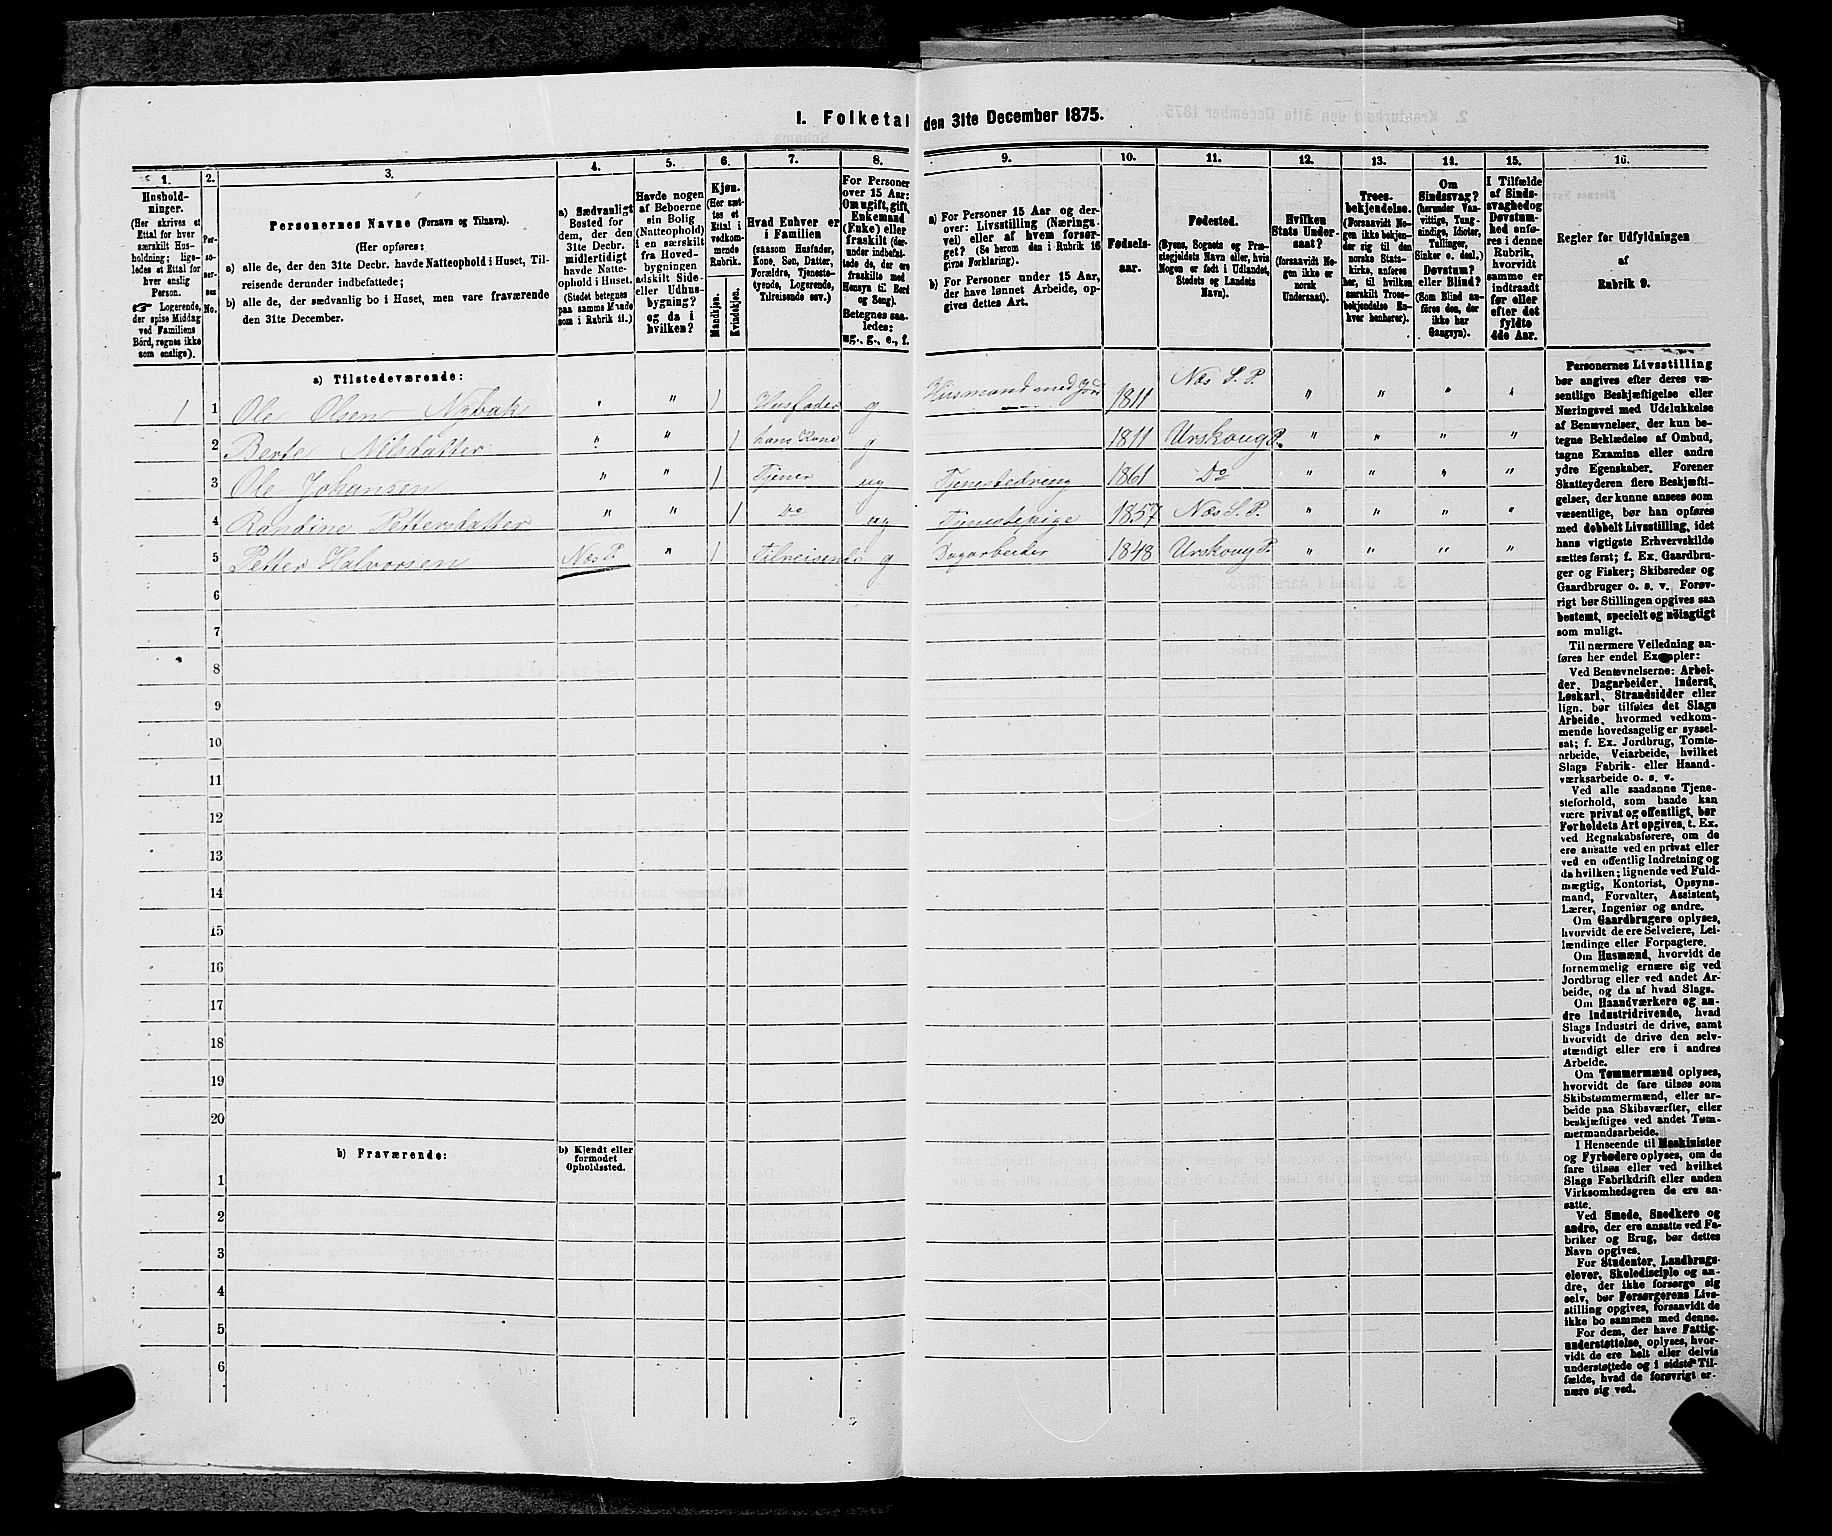 I. Folketal den 31te December 1875.
1. 2. 3. 4. 5. 6. 7. 8. 9. 10. 11. 12. 13. 14. 15. 16.
Husholdninger.
(Her skrives et
Ettal for hver
særskilt Husholdning;
ligeledes et Ettal for
hver enslig
Person.
☞ Logerende,
der spise Middag
ved Familiens
Bord, regnes ikke
som enslige).
Personernes No.
Personernes Navne (Fornavn og Tilnavn).
(Her opføres:
a) alle de, der den 31te Decbr. havde Natteophold i Huset, Til-
reisende derunder indbefattede;
b) alle de, der sædvanlig bo i Huset, men vare fraværende
den 31te December.
a) Sædvanligt
Bosted for
dem, der den
31te Decbr.
midlertidigt
havde Natte-
ophold i Huset.
(Stedet betegnes
paa samme Maade
som i Rubrik 11.)
Havde nogen
af Beboerne
sin Bolig
(Natteophold)
i en særskilt
fra Hoved-
bygningen
adskilt Side-
eller Udhus-
bygning?
og da i
hvilken?
Kjøn.
(Her sæt-
tes et
Ettal i
vedkom-
mende
Rubrik.
Mandkjøn.
Kvindekjøn.
Hvad Enhver er
i Familien
(saasom Husfader,
Kone, Søn, Datter,
Forældre, Tjeneste-
tyende, Logerende,
Tilreisende osv.)
For Personer
over 15 Aar:
Om ugift, gift,
Enkemand
(Enke) eller
fraskilt (der-
under indbefat-
tede de, der ere
fraskilte med
Hensyn til Bord
og Seng).
Betegnes saa-
ledes:
ug., g., e., f.
a) For Personer 15 Aar og der-
over: Livsstilling (Nærings-
vei) eller af hvem forsør-
get? (Se herom den i Rubrik 16
givne Forklaring).
b) For Personer under 15 Aar,
der have lønnet Arbeide, op-
gives dettes Art.
Fødsels-
aar.
Fødested.
(Byens, Sognets og Præ-
stegjeldets Navn eller, hvis
Nogen er født i Udlandet,
Stedets og Landets
Navn).
Hvilken
Stats Under-
saat?
(forsaavidt No-
gen ikke er
norsk
Undersaat).
Troes-
bekjendelse.
(Forsaavidt No-
gen ikke bekjen-
der sig til den
norske Stats-
kirke, anføres
her, til hvilken
særskilt Troes-
bekjendelse En-
hver henhører).
Om
Sindssvag?
(herunder Van-
vittige, Tung-
sindige, Idioter,
Tullinger,
Sinker o. desl.)
Døvstum?
eller Blind?
(Som Blind an-
føres den, der
ikke har
Gangsyn).
I Tilfælde
af Sinds-
svaghed og
Døvstum-
hed anfø-
res i denne
Rubrik,
hvorvidt
samme er
indtraadt
før eller
efter det
fyldte
4de Aar.
Regler for Udfyldningen
af
Rubrik 9.
a) Tilstedeværende:
1 1 Ole Olsen Nybak " " 1 Husfader g Husmand med Jord 1811 Næs S. P. " " " "
2 Berte Nilsdatter " " 1 hans Kone g 1811 Urskoug P. " " " "
3 Ole Johansen " " 1 Tjener ug Tjenestedreng 1861 Do " " " "
4 Randine Pettersdatter " " 1 Do ug Tjenestepige 1857 Næs S. P. " " " "
5 Petter Halvorsen Næs P. " 1 Tilreisende g Dagarbeider 1848 Urskoug P. " " " "
6
7
8
9
10
11
12
13
14
15
16
17
18
19
20
b) Fraværende:
b) Kjendt eller
formodet
Opholdssted.
1
2
3
4
5
6
Personernes Livsstilling
bør angives efter deres væ-
sentlige Beskjæftigelse eller
Næringsvei med Udelukkelse
af Benævnelser, der kun be-
tegne Beklædelse af Ombud,
tagne Examina eller andre
ydre Egenskaber. Forener
Skatteyderen flere Beskjæfti-
gelser, der kunne ansees som
væsentlige, bør han opføres
med dobbelt Livsstilling, idet
hans vigtigste Erhvervskilde
sættes først; f. Ex. Gaardbru-
ger og Fisker; Skibsreder og
Gaardbruger o. s. v. Forøv-
rigt bør Stillingen opgives saa
bestemt, specielt og nøiagtigt
som muligt.
Til nærmere Veiledning an-
føres her endel Exempler:
Ved Benævnelserne: Arbei-
der, Dagarbeider, Inderst,
Løskarl, Strandsidder eller
lign. bør tilføies det Slags
Arbeide, hvormed vedkom-
mende hovedsagelig er syssel-
sat; f. Ex. Jordbrug, Tomte-
arbeide, Veiarbeide, hvilket
Slags Fabrik- eller Haand-
værksarbeide o. s. v.
Ved alle saadanne Tjene-
steforhold, som baade kan
være privat og offentligt, bør
Forholdets Art opgives, t. Ex.
ved Regnskabsførere, om de
ere ansatte ved en privat eller
ved en offentlig Indretning og
da hvilken; lignende ved Fuld-
mægtig, Kontorist, Opsyns-
mand, Forvalter, Assistent,
Lærer, Ingeniør og andre.
Om Gaardbrugere oplyses,
hvorvidt de ere Selveiere, Lei-
lændinge eller Forpagtere.
Om Husmænd, hvorvidt de
fornemmelig ernære sig ved
Jordbrug eller ved andet Ar-
beide, og da af hvad Slags.
Om Haandværkere og an-
dre Industridrivende, hvad
Slags Industri de drive, samt
hvorvidt de drive den selv-
stændigt eller ere i andres
Arbeide.
Om Tømmermænd oplyses,
hvorvidt de fare tilsøs som
Skibstømmermænd, eller ar-
beide paa Skibsværfter, eller
beskjæftiges ved andet Tøm-
mermandsarbeide.
I Henseende til Maskinister
og Fyrbødere oplyses, om de
fare tilsøs eller ved hvilket
Slags Fabrikdrift eller anden
Virksomhedsgren de ere an-
satte.
Ved Smede, Snedkere og
andre, der ere ansatte ved Fa-
briker og Brug, bør dettes
Navn opgives.
For Studenter, Landbrugs-
elever, Skoledisciple og an-
dre, der ikke forsørge sig
selv, bør Forsørgerens Livs-
stilling opgives, forsaavidt de
ikke bo sammen med denne.
For dem, der have Fattig-
understøttelse, oplyses, hvor-
vidt de ere helt eller delvis
understøttede og i sidste Til-
fælde, hvad de forøvrigt er-
nære sig ved.